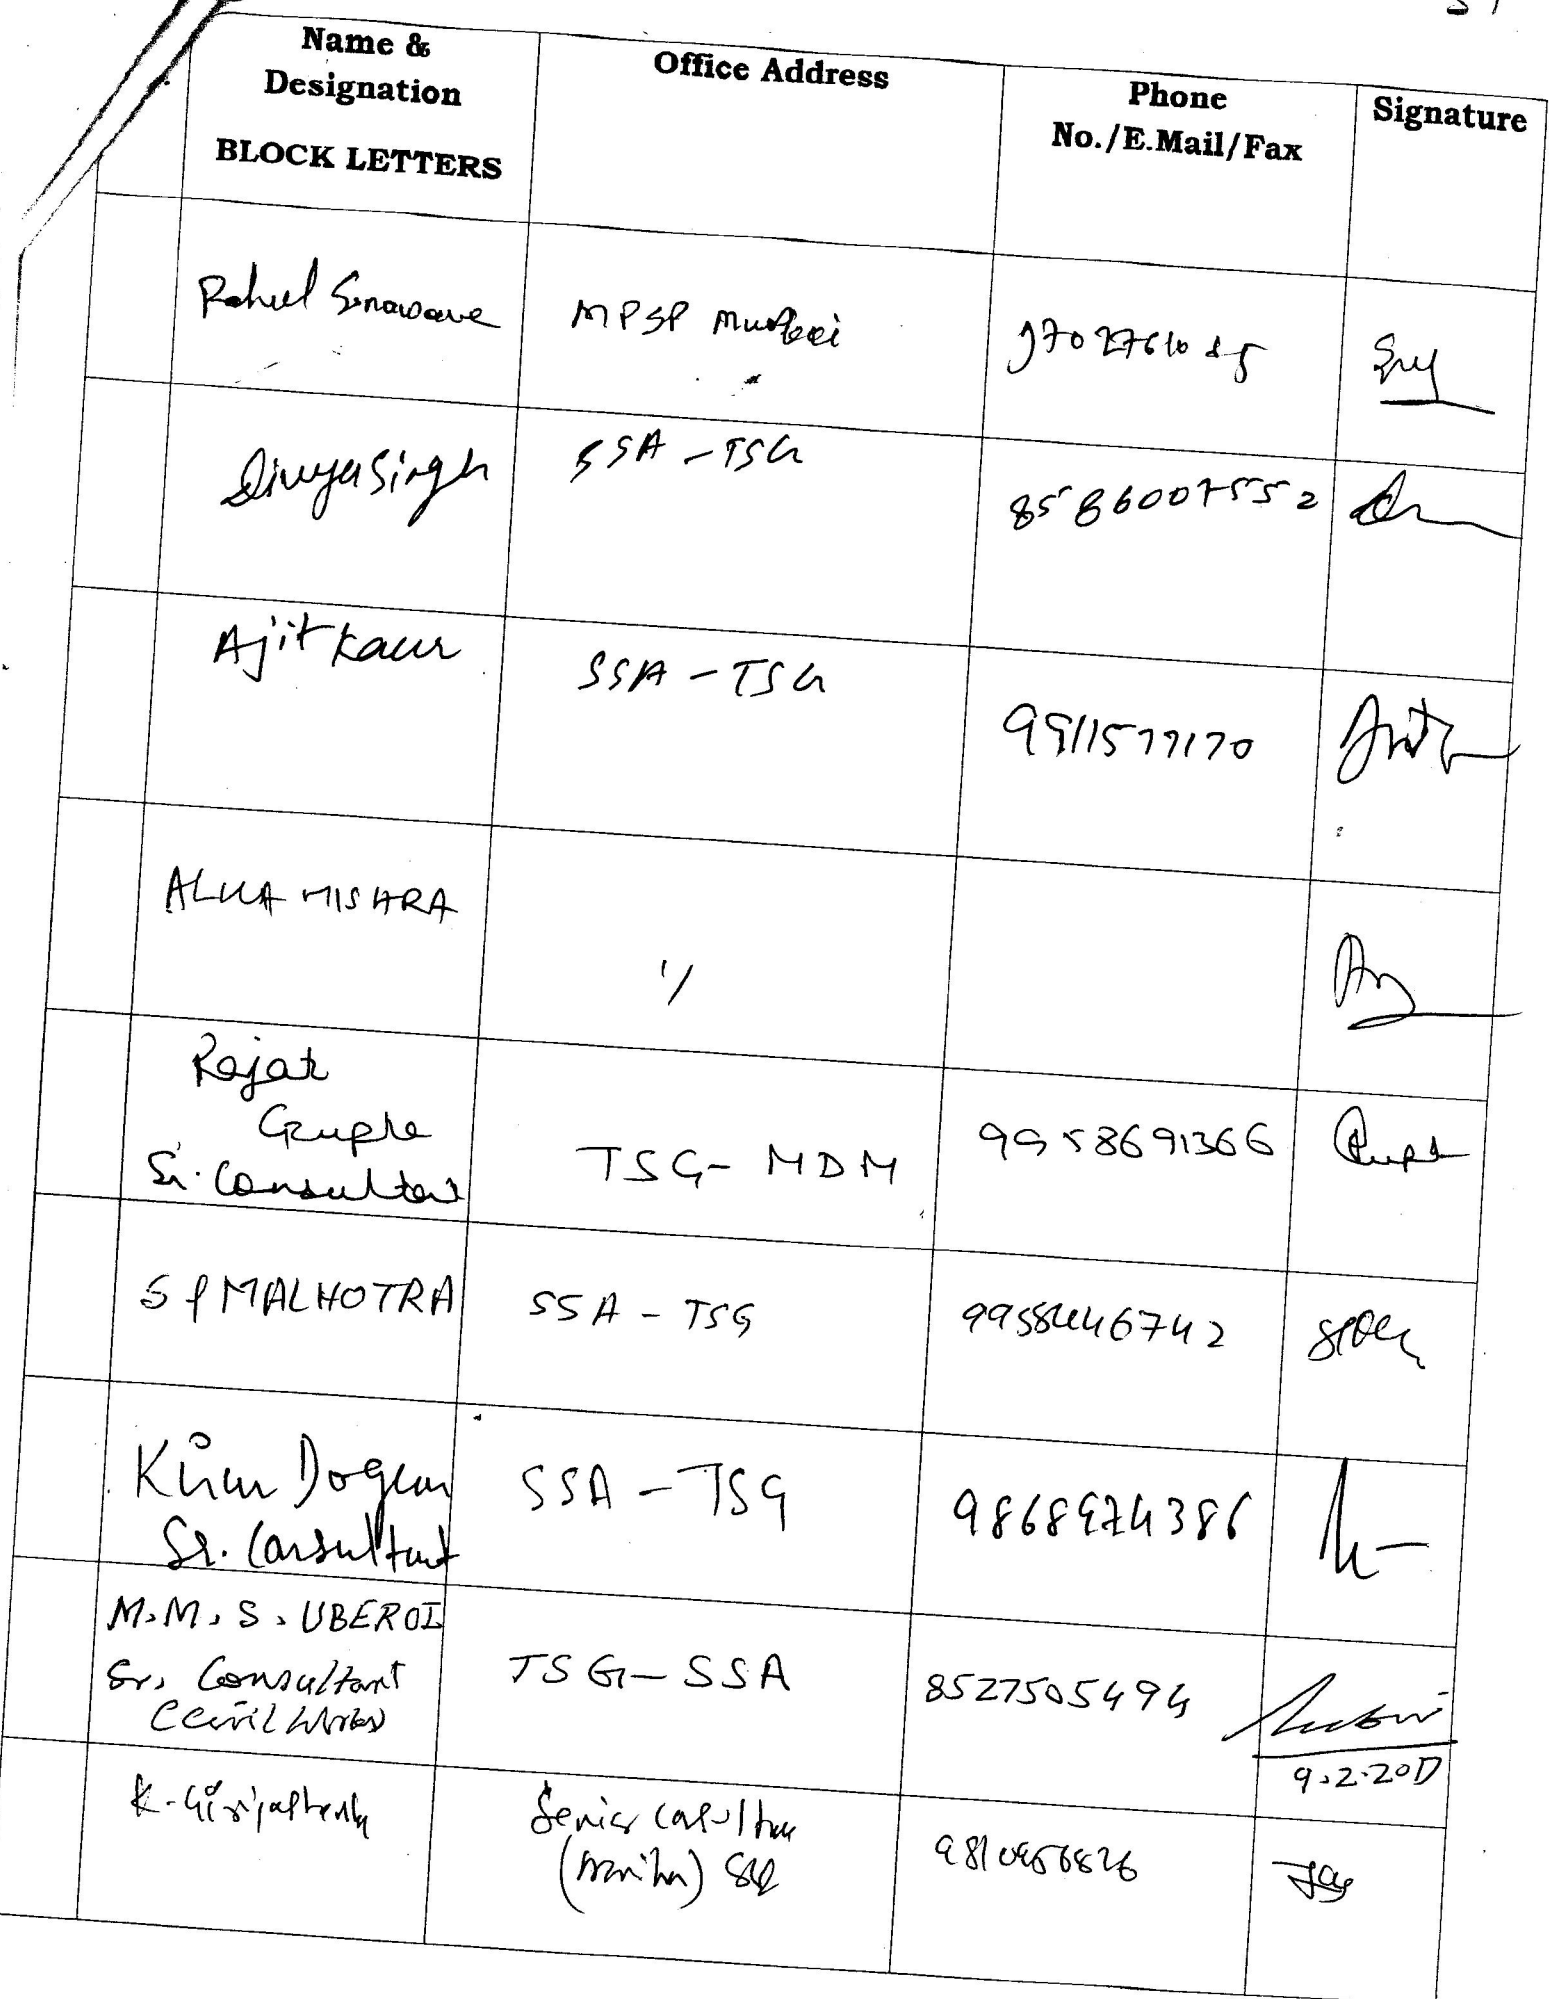 Name &
Designation
BLOCK LETTERS
Office Address
Phone
No./E.Mail/Fax
Signature
Rahul Sonawane
MPSP Mumbai
Divya Singh
SSA - TSG
8586007552
Ajit Kaur
SSA - TSG
9911577170
ALKA MISHRA
"
Rajat
Gupta
Sr. Consultant
TSG- MDM
9958691366
Gupta
S P MALHOTRA
SSA - TSG
9958446742
Kiran Dogra
Sr. Consultant
SSA - TSG
9868974386
M. M. S. UBEROI
Sr. Consultant
(Civil Works)
TSG - SSA
8527505494
9.2.2017
K. Girija
Senior Consultant